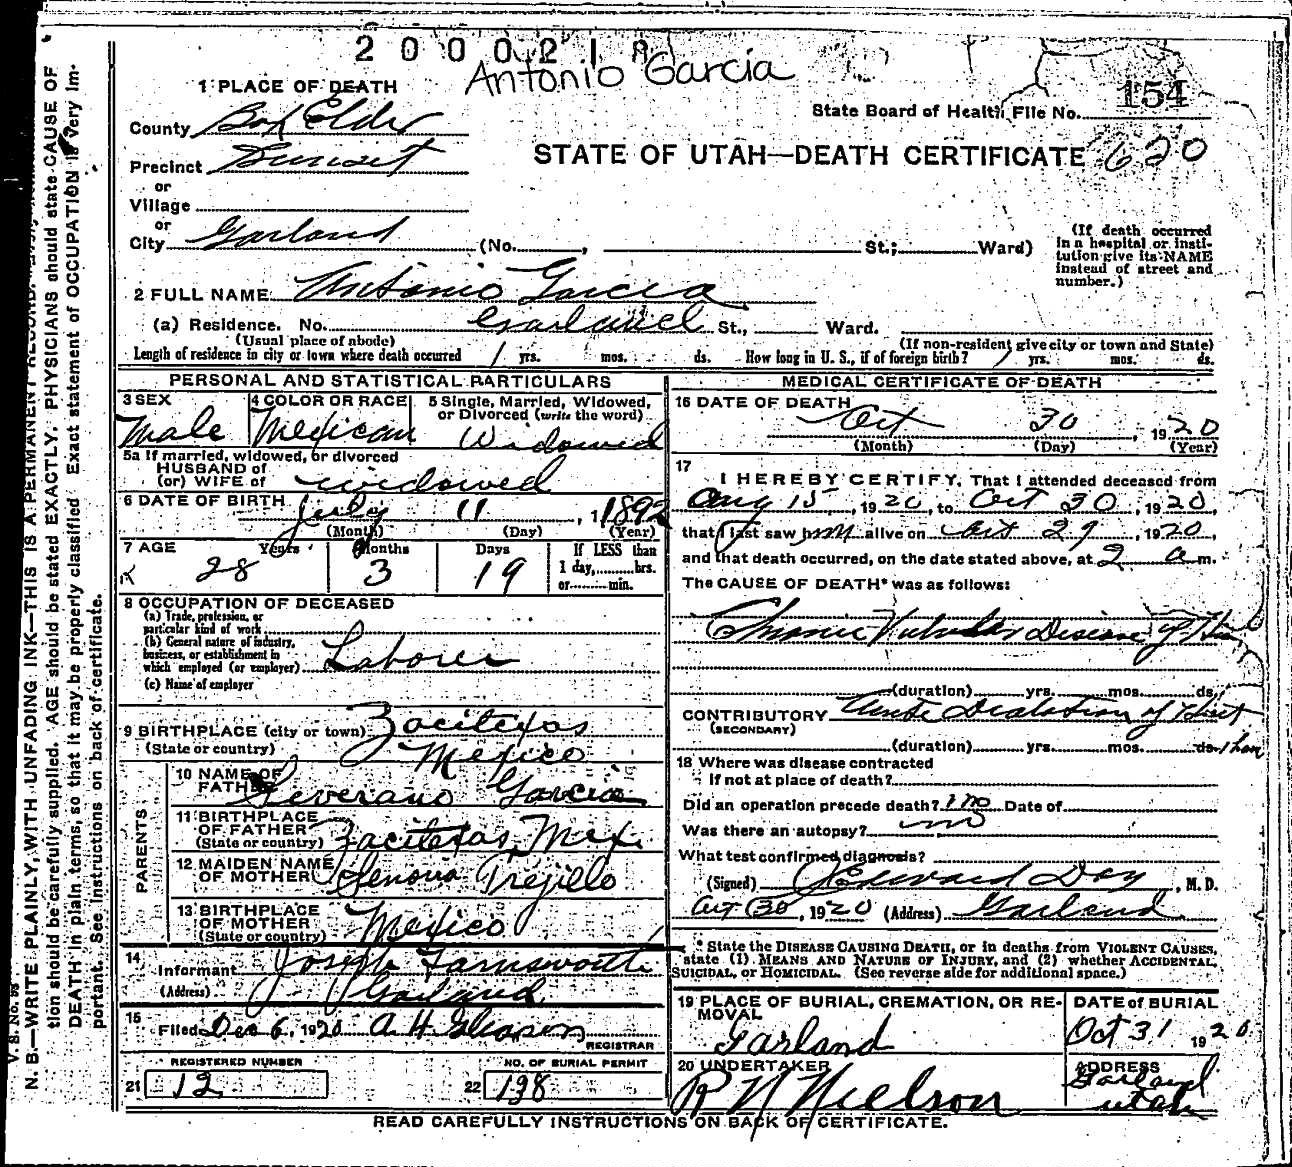 200021
Antonio Garcia
1 PLACE OF DEATH
154
State Board of Health File No.
County Box Elder
STATE OF UTAH—DEATH CERTIFICATE 620
Precinct Sunset
or
Village
or
City Garland (No. , St.; Ward)
(If death occurred in a hospital or institution give its NAME instead of street and number.)
2 FULL NAME Antonio Garcia
(a) Residence. No. Garland St., Ward.
(Usual place of abode) (If non-resident give city or town and State)
Length of residence in city or town where death occurred 1 yrs. mos. ds. How long in U. S., if of foreign birth? 1 yrs. mos. ds.
PERSONAL AND STATISTICAL PARTICULARS
3 SEX Male
4 COLOR OR RACE Mexican
5 Single, Married, Widowed, or Divorced (write the word) Widowed
5a If married, widowed, or divorced
HUSBAND of
(or) WIFE of widowed
6 DATE OF BIRTH July 11, 1892
(Month) (Day) (Year)
7 AGE Years Months Days If LESS than
28 3 19 1 day, hrs.
or min.
8 OCCUPATION OF DECEASED
(a) Trade, profession, or
particular kind of work
(b) General nature of industry,
business, or establishment in
which employed (or employer) Laborer
(c) Name of employer
9 BIRTHPLACE (city or town)
(State or country) Mexico
PARENTS
10 NAME OF
FATHER Severano Garcia
11 BIRTHPLACE
OF FATHER
(State or country) Mex.
12 MAIDEN NAME
OF MOTHER Senona Trejillo
13 BIRTHPLACE
OF MOTHER
(State or country) Mexico
14
Informant Joseph Farnsworth
(Address) Garland
15
Filed Dec 6, 1920 A H Gleason
REGISTRAR
REGISTERED NUMBER NO. OF BURIAL PERMIT
21 12 22 138
MEDICAL CERTIFICATE OF DEATH
16 DATE OF DEATH
Oct 30, 1920
(Month) (Day) (Year)
17
I HEREBY CERTIFY, That I attended deceased from
Aug 15, 1920, to Oct 30, 1920,
that I last saw him alive on Oct 29, 1920,
and that death occurred, on the date stated above, at 2 a m.
The CAUSE OF DEATH* was as follows:
Chronic Valvular Disease of Heart
(duration) yrs. mos. ds.
CONTRIBUTORY Acute Dialation of Heart
(SECONDARY)
(duration) yrs. mos. ds. 1 hour
18 Where was disease contracted
if not at place of death?
Did an operation precede death? no Date of
Was there an autopsy? no
What test confirmed diagnosis?
(Signed) Edward Day, M. D.
Oct 30, 1920 (Address) Garland
* State the DISEASE CAUSING DEATH, or in deaths from VIOLENT CAUSES,
state (1) MEANS AND NATURE OF INJURY, and (2) whether ACCIDENTAL,
SUICIDAL, or HOMICIDAL. (See reverse side for additional space.)
19 PLACE OF BURIAL, CREMATION, OR REMOVAL
Garland
DATE of BURIAL
Oct 31 1920
20 UNDERTAKER
R N Nielson
ADDRESS
Garland
utah
READ CAREFULLY INSTRUCTIONS ON BACK OF CERTIFICATE.
N. B.—WRITE PLAINLY, WITH UNFADING INK—THIS IS A PERMANENT RECORD.
tion should be carefully supplied. AGE should be stated EXACTLY. PHYSICIANS should state CAUSE OF
DEATH in plain terms, so that it may be properly classified. Exact statement of OCCUPATION is very im-
portant. See instructions on back of certificate.